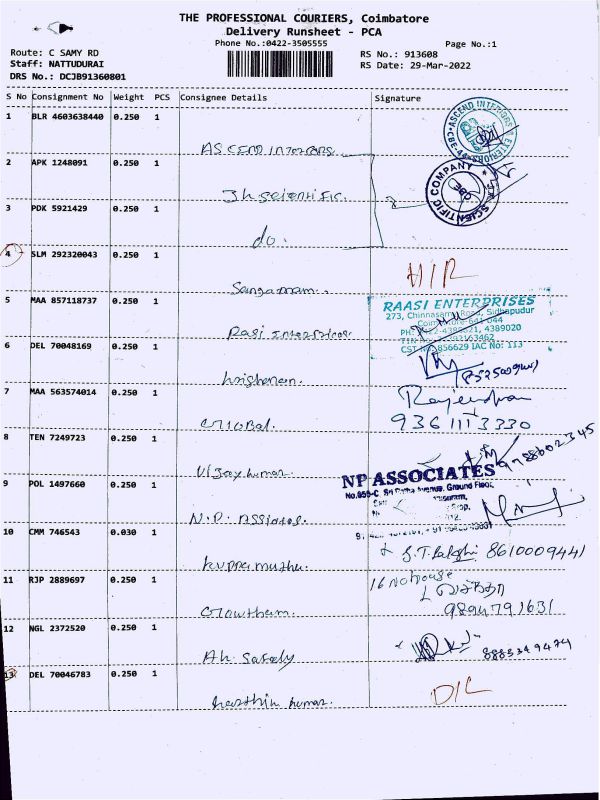 THE PROFESSIONAL COURIERS, Coimbatore
Delivery Runsheet - PCA
Phone No.:0422-3505555
Page No.:1
Route: C SAMY RD
RS No.: 913608
Staff: NATTUDURAI
RS Date: 29-Mar-2022
DRS No.: DCJB91360801
S No Consignment No Weight PCS Consignee Details Signature
1 BLR 4603638440 0.250 1 ASCEND INTERIORS
ASCEND INTERIORS EXTERIOR
2 APK 1248091 0.250 1 Jh scientific.
SCIENTIFIC COMPANY CBE
3 PDK 5921429 0.250 1 do.
4 SLM 292320043 0.250 1 Sangamam.
5 MAA 857118737 0.250 1 Rasi Enterprises.
RAASI ENTERPRISES
273, Chinnasamy Road, Sidhapudur
Coimbatore-641 044
4389020
CST No: 856629 IAC No: 113
6 DEL 70048169 0.250 1
7 MAA 563574014 0.250 1 Global.
Rajendran
9361113330
8 TEN 7249723 0.250 1 Vijaykumar.
9788602345
9 POL 1497660 0.250 1 N.P. Assiates.
NP ASSOCIATES
Avenue, Ground Floor,
10 CMM 746543 0.030 1 kuppamuthu.
8610009441
11 RJP 2889697 0.250 1 Gowtham.
16 No house
9894791631
12 NGL 2372520 0.250 1 Ah. Safety
8885349474
13 DEL 70046783 0.250 1 karthik kumar.
D/L